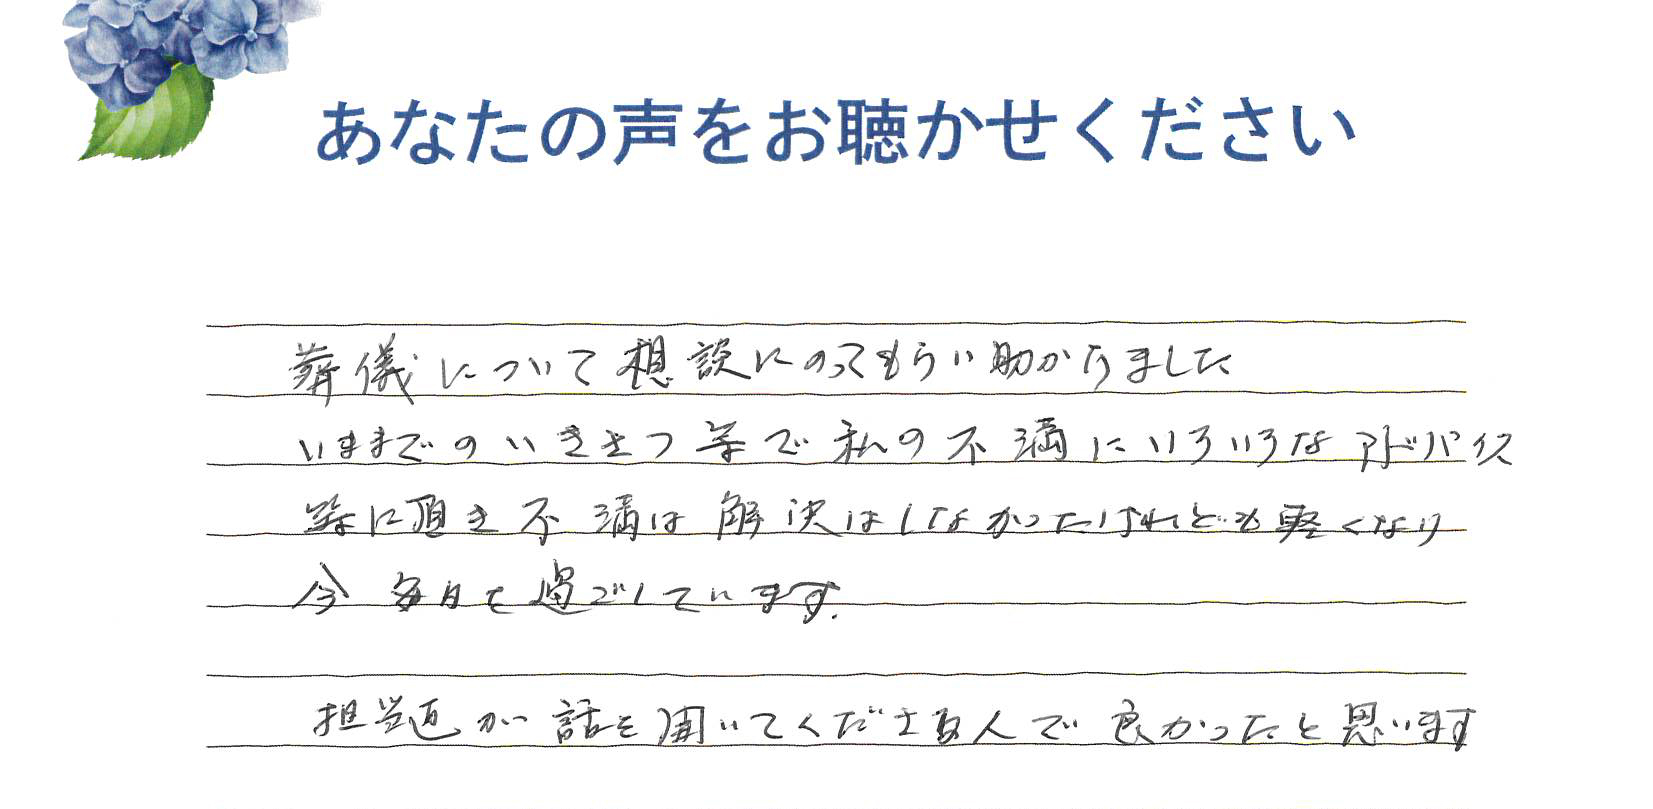 あなたの声をお聴かせください
葬儀について想談にのってもらい助かりました
いままでのいきさつ等で私の不満にいろいろなアドバイス
等に頂き不満は解決はしなかったけれども軽くなり
今毎日を過ごしています.
担当 が話を聞いてくださる人で良かったと思います